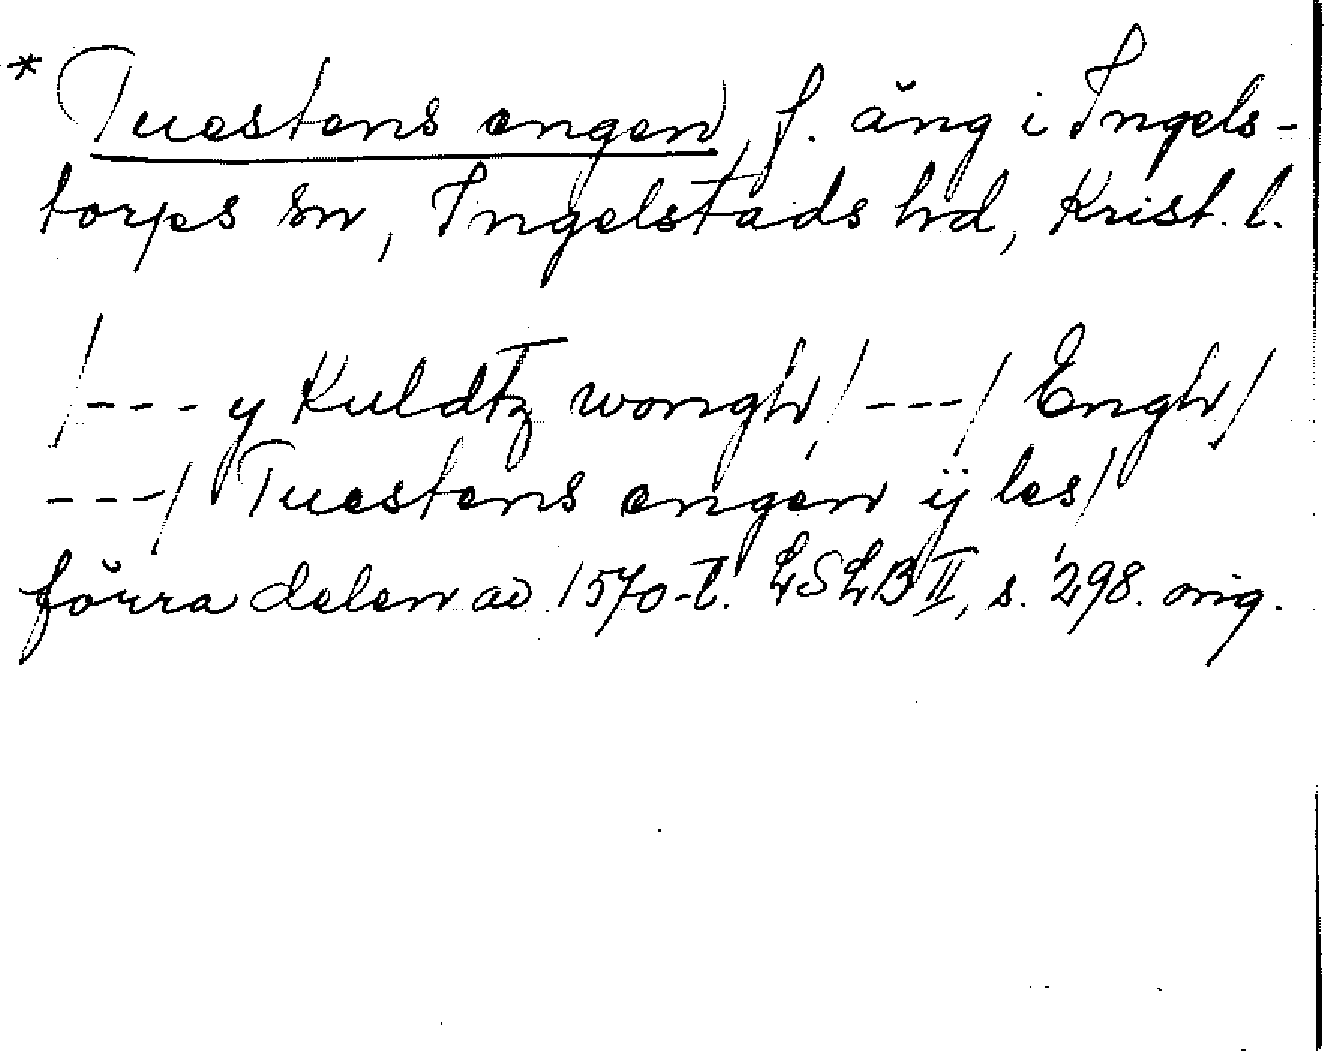 * Tuestens engen, f. äng i Ingels-
torps sn, Ingelstads hd, Krist. l.
/--- y Kuldtz wongh/ ---/ Engh/
---/ Tuestens engen ij les/
förra delen av 1570-t. LSLB II, s. 298. orig.